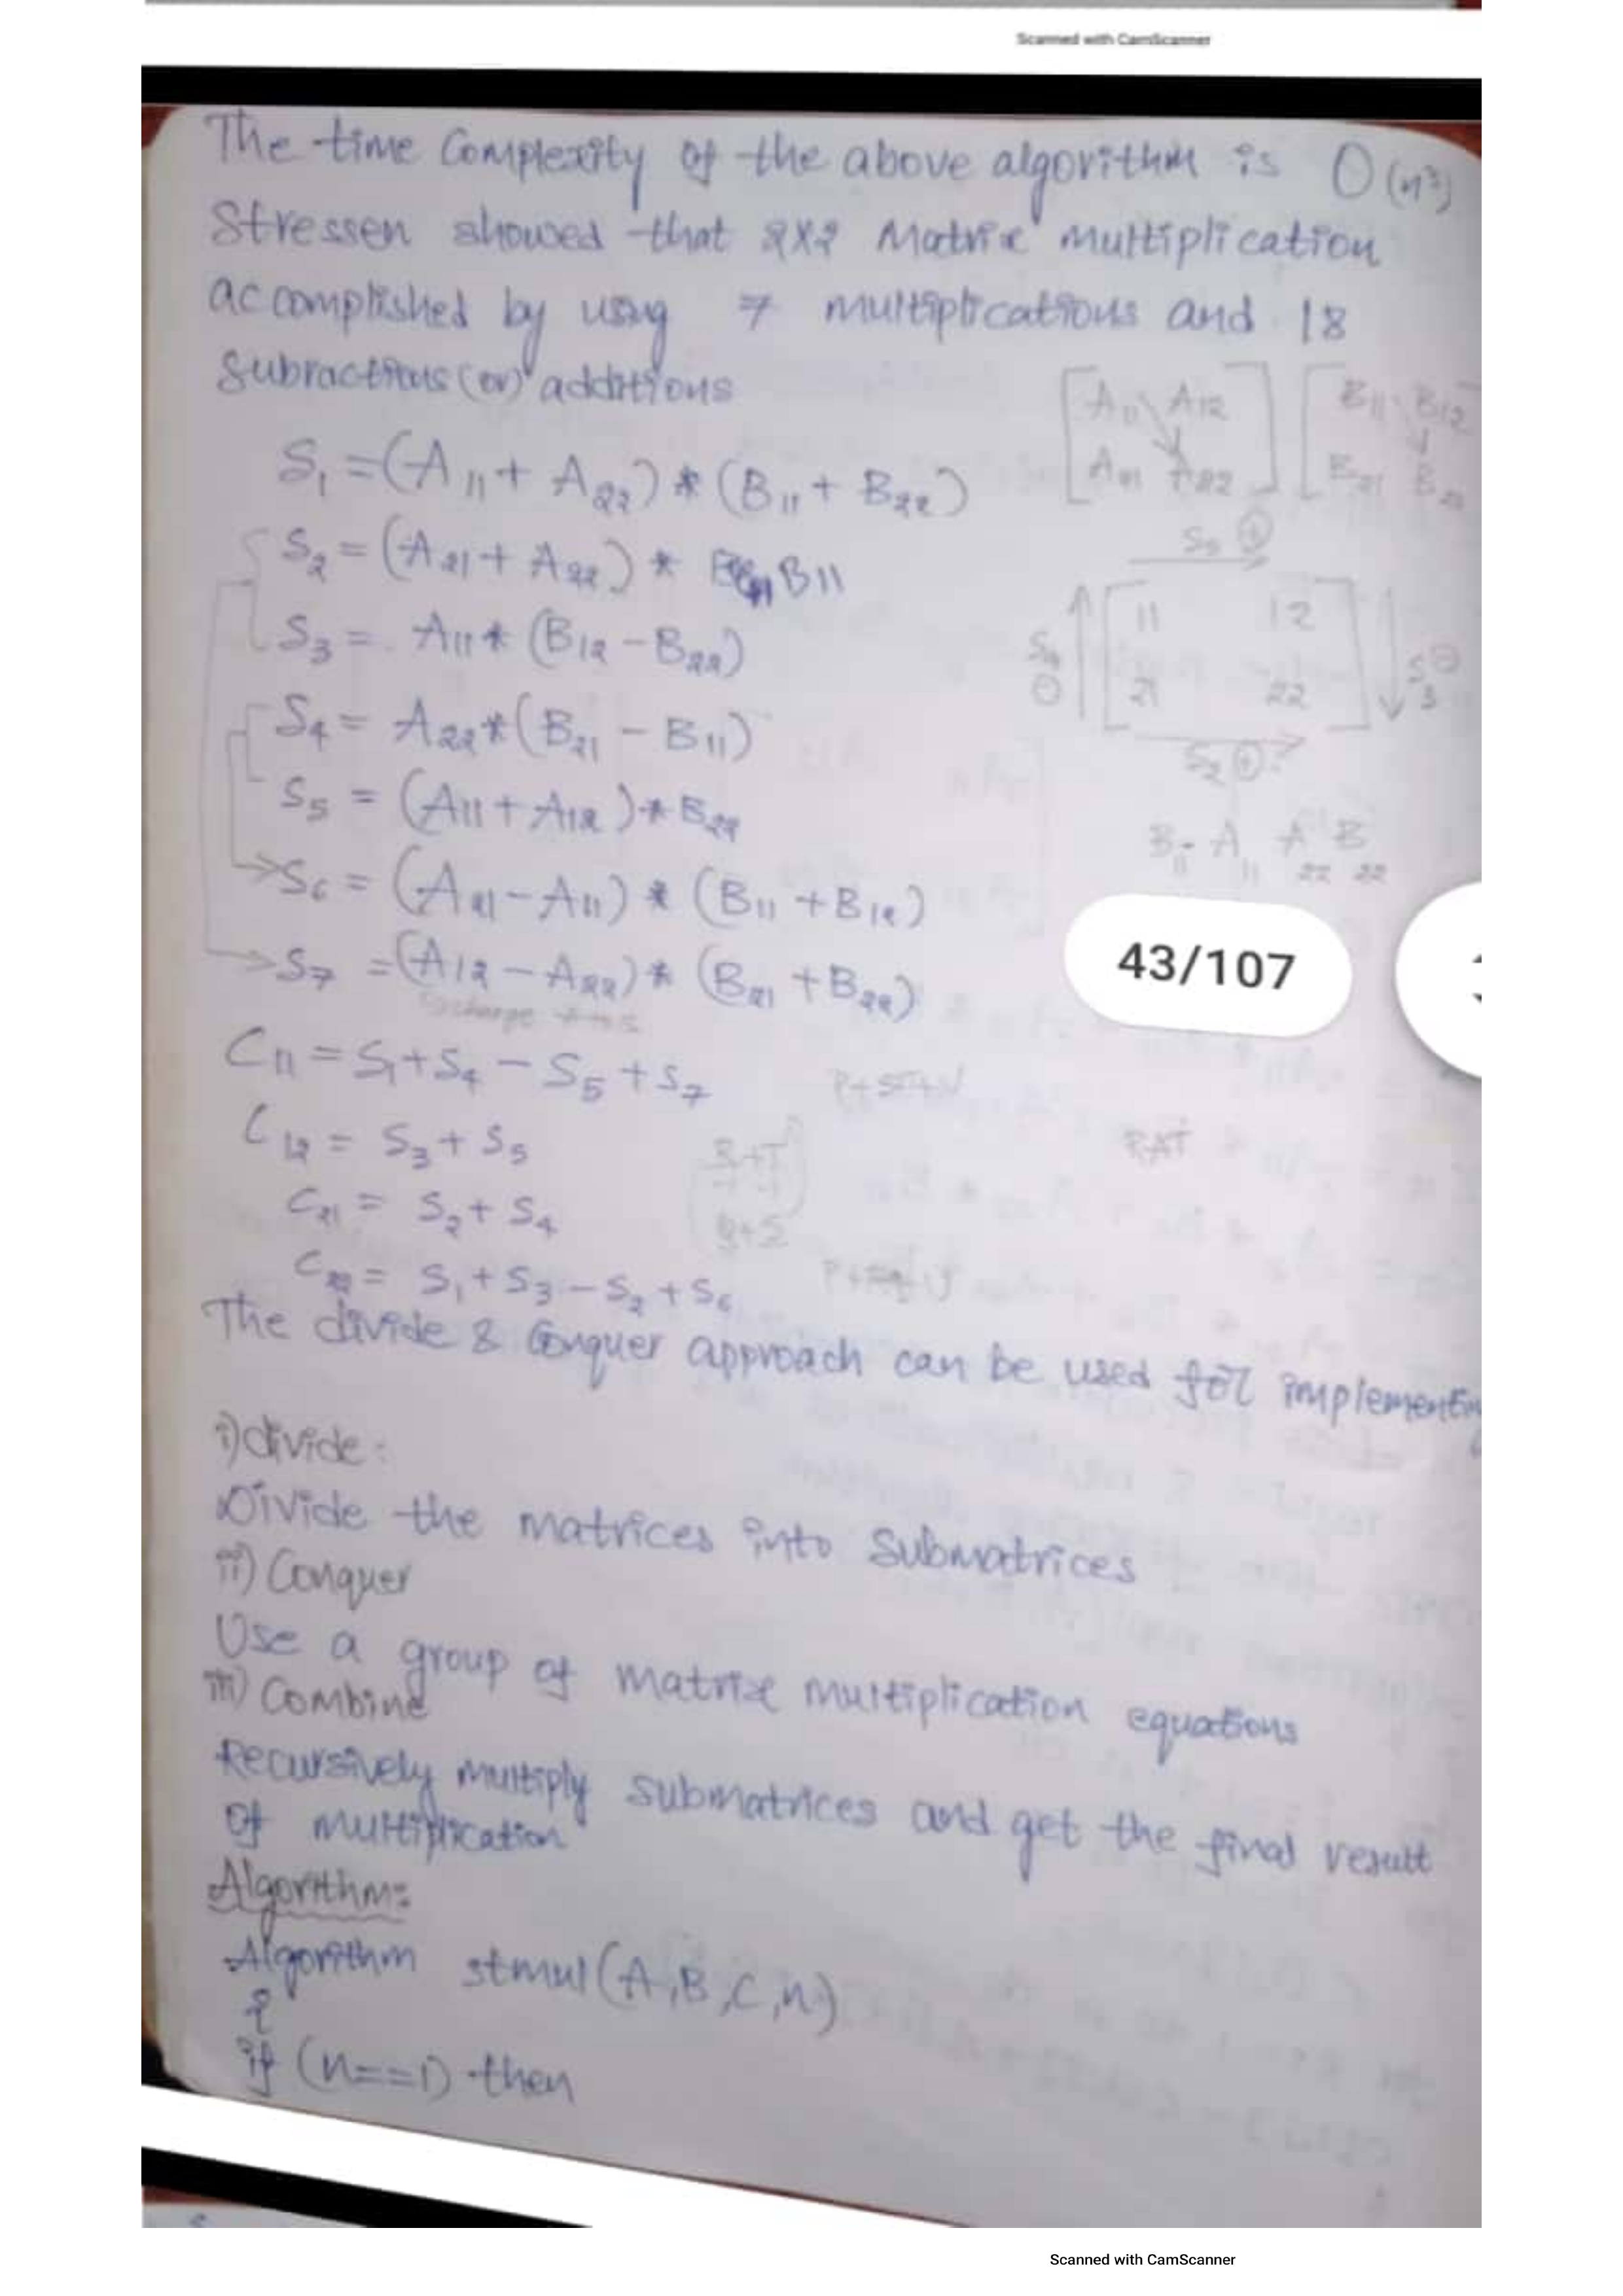 Scanned with CamScanner
The time Complexity of the above algorithm is O(n³)
Stressen showed that 2X2 Matrix multiplication
accomplished by using 7 multiplications and 18
Subractions (or) additions
[A11 A12 [B11 B12
A21 A22] B21 B22
S1 = (A11 + A22) * (B11 + B22)
S2 = (A21 + A22) * B11
S3 = A11 * (B12 - B22)
S4 = A22 * (B21 - B11)
S5 = (A11 + A12) * B22
S6 = (A21 - A11) * (B11 + B12)
S7 = (A12 - A22) * (B21 + B22)
S5 +
11 12
S4 - S3 -
21 22
S2 +
B11 A11 A22 B22
43/107
C11 = S1 + S4 - S5 + S7
C12 = S3 + S5
RAT
C21 = S2 + S4
C22 = S1 + S3 - S2 + S6
The divide & Conquer approach can be used for
i) divide:
Divide the matrices into Submatrices
ii) Conquer
Use a group of matrix multiplication equations
iii) Combine
Recursively multiply submatrices and get the final result
of multiplication
Algorithm:
Algorithm stmul(A,B,C,n)
{
if (n==1) then
Scanned with CamScanner